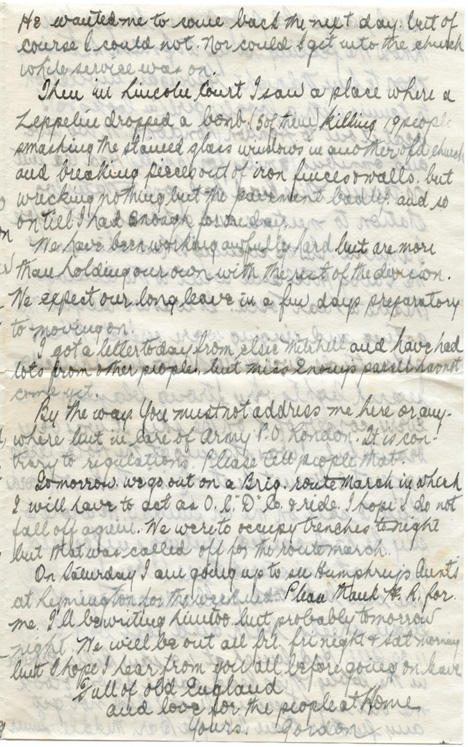 He wanted me to come back the next day but of
course I could not. Nor could I get into the church
while service was on.
Then in Lincoln Court I saw a place where a
Zeppelin dropped a bomb (3 of them killing 19 people
smashing the stained glass windows in another old church
and breaking pieces out of iron fences & walls. but
wrecking nothing but the pavement badly. and so
on till I had enough for the day.
We have been working awfully hard but are more
than holding our own with the rest of the division.
We expect our long leave in a few days preparatory
to moving on.
I got a letter today from Elsie Mitchell and have had
lots from other people, but Miss parcel hasnt
come yet.
By the way You must not address me here or any-
where but in care of Army P.O. London. It is con-
trary to regulations. Please tell people that.
Tomorrow we go out on a Brig. route march in which
I will have to act as O.C. "D" Co. & ride. I hope I do not
fall off again. We were to occupy trenches tonight
but that was called off for the route march.
On Saturday I am going up to see Humphrey's Aunts
at for the weekend. Please thank H.R. for
me. I'll be writing him too but probably tomorrow
night. We will be out all fri night & sat morning
but I hope I hear from you all before going on leave
Full of old England
and love for the people at Home
Yours. Gordon